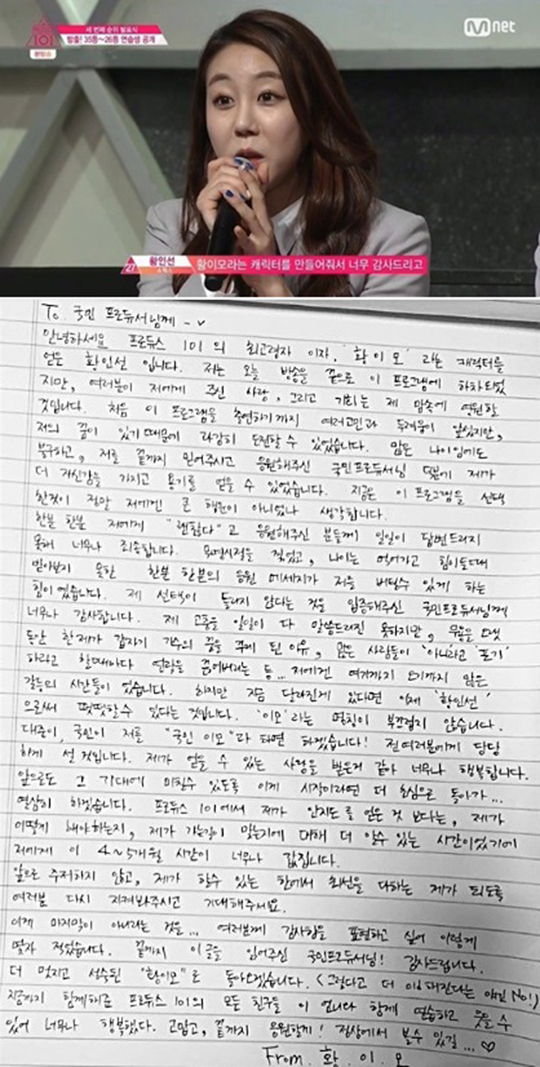 세 번째 순위 발표식
방출! 35등~26등 연습생 공개
101
본방송
Mnet
27 황인선
황이모라는 캐릭터를 만들어줘서 너무 감사드리고
To. 국민 프로듀서님께 -
안녕하세요 프로듀스 101 의 최고령자 이자, '황이모' 라는 캐릭터를
얻은 황인선 입니다. 저는 오늘 방송을 끝으로 이 프로그램에 하차되었
지만, 여러분이 저에게 주신 사랑, 그리고 기회는 제 맘속에 영원할
것입니다. 처음 이 프로그램을 출연하기까지 여러고민과 두려움이 앞섰지만,
저의 꿈이 있기 때문에 과감히 도전할 수 있었습니다. 많은 나이임에도
불구하고, 저를 끝까지 믿어주시고 응원해주신 국민프로듀서님 덕분에 제가
더 자신감을 가지고 용기를 얻을 수 있었습니다. 지금은 이 프로그램을 선택
한것이 정말 저에겐 큰 행운이 아니었나 생각합니다.
한분 한분 저에게 "괜찮다"고 응원해주신 분들께 일일이 답변드리지
못해 너무나 죄송합니다. 무명시절을 겪었고, 나이는 먹어가고 힘이들때
받아보지 못한 한분 한분의 응원 메세지가 저를 버틸수 있게 하는
힘이였습니다. 제 선택이 틀리지 않다는 것을 입증해주신 국민프로듀서님께
너무나 감사합니다. 제 고충을 일일이 다 말씀드리진 못하지만, 무용을
동안 한 제가 갑자기 가수의 꿈을 꾸게 된 이유, 많은 사람들이 '아니라고' '포기'
하라고 할때마다 열망을 품어버리는 등... 저에겐 여기까지 오기까지 많은
갈등의 시간들이 있었습니다. 하지만 지금 달라진게 있다면 이제 '황인선'
으로써 떳떳할수 있다는 것입니다. '이모'라는 명칭이 부끄럽지 않습니다.
대중이, 국민이 저를 "국민 이모"라 하면 하겠습니다! 전 여러분에게 당당
하게 설 것입니다. 제가 얻을 수 있는 사랑을 받은거 같아 너무나 행복합니다.
앞으로도 그 기대에 미칠수 있도록 이게 시작이라면 더 초심으로 돌아가...
열심히 하겠습니다. 프로듀스 101에서 제가 인지도를 얻은 것 보다는, 제가
어떻게 해야하는지, 제가 가는길이 맞는지에 대해 더 알수 있는 시간이었기에
저에게 이 4~5개월 시간이 너무나 값집니다.
앞으로 주저하지 않고, 제가 할수 있는 한에서 최선을 다하는 제가 되도록
여러분 다시 지켜봐주시고 기대해주세요.
이게 마지막이 아니라는 것을... 여러분께 감사함을 표현하고 싶어 이렇게
몇자 적었습니다. 끝까지 이글을 읽어주신 국민프로듀서님! 감사드립니다.
더 멋지고 성숙된 "황이모"로 돌아오겠습니다. (그렇다고 더 이모해진다는 얘긴 No!)
지금까지 함께해준 프로듀스 101의 모든 친구들 이 언니가 함께 연습하고 웃을 수
있어 너무나 행복했다. 고맙고, 끝까지 응원할게! 정상에서 볼수 있길... ♡
From. 황. 이. 모